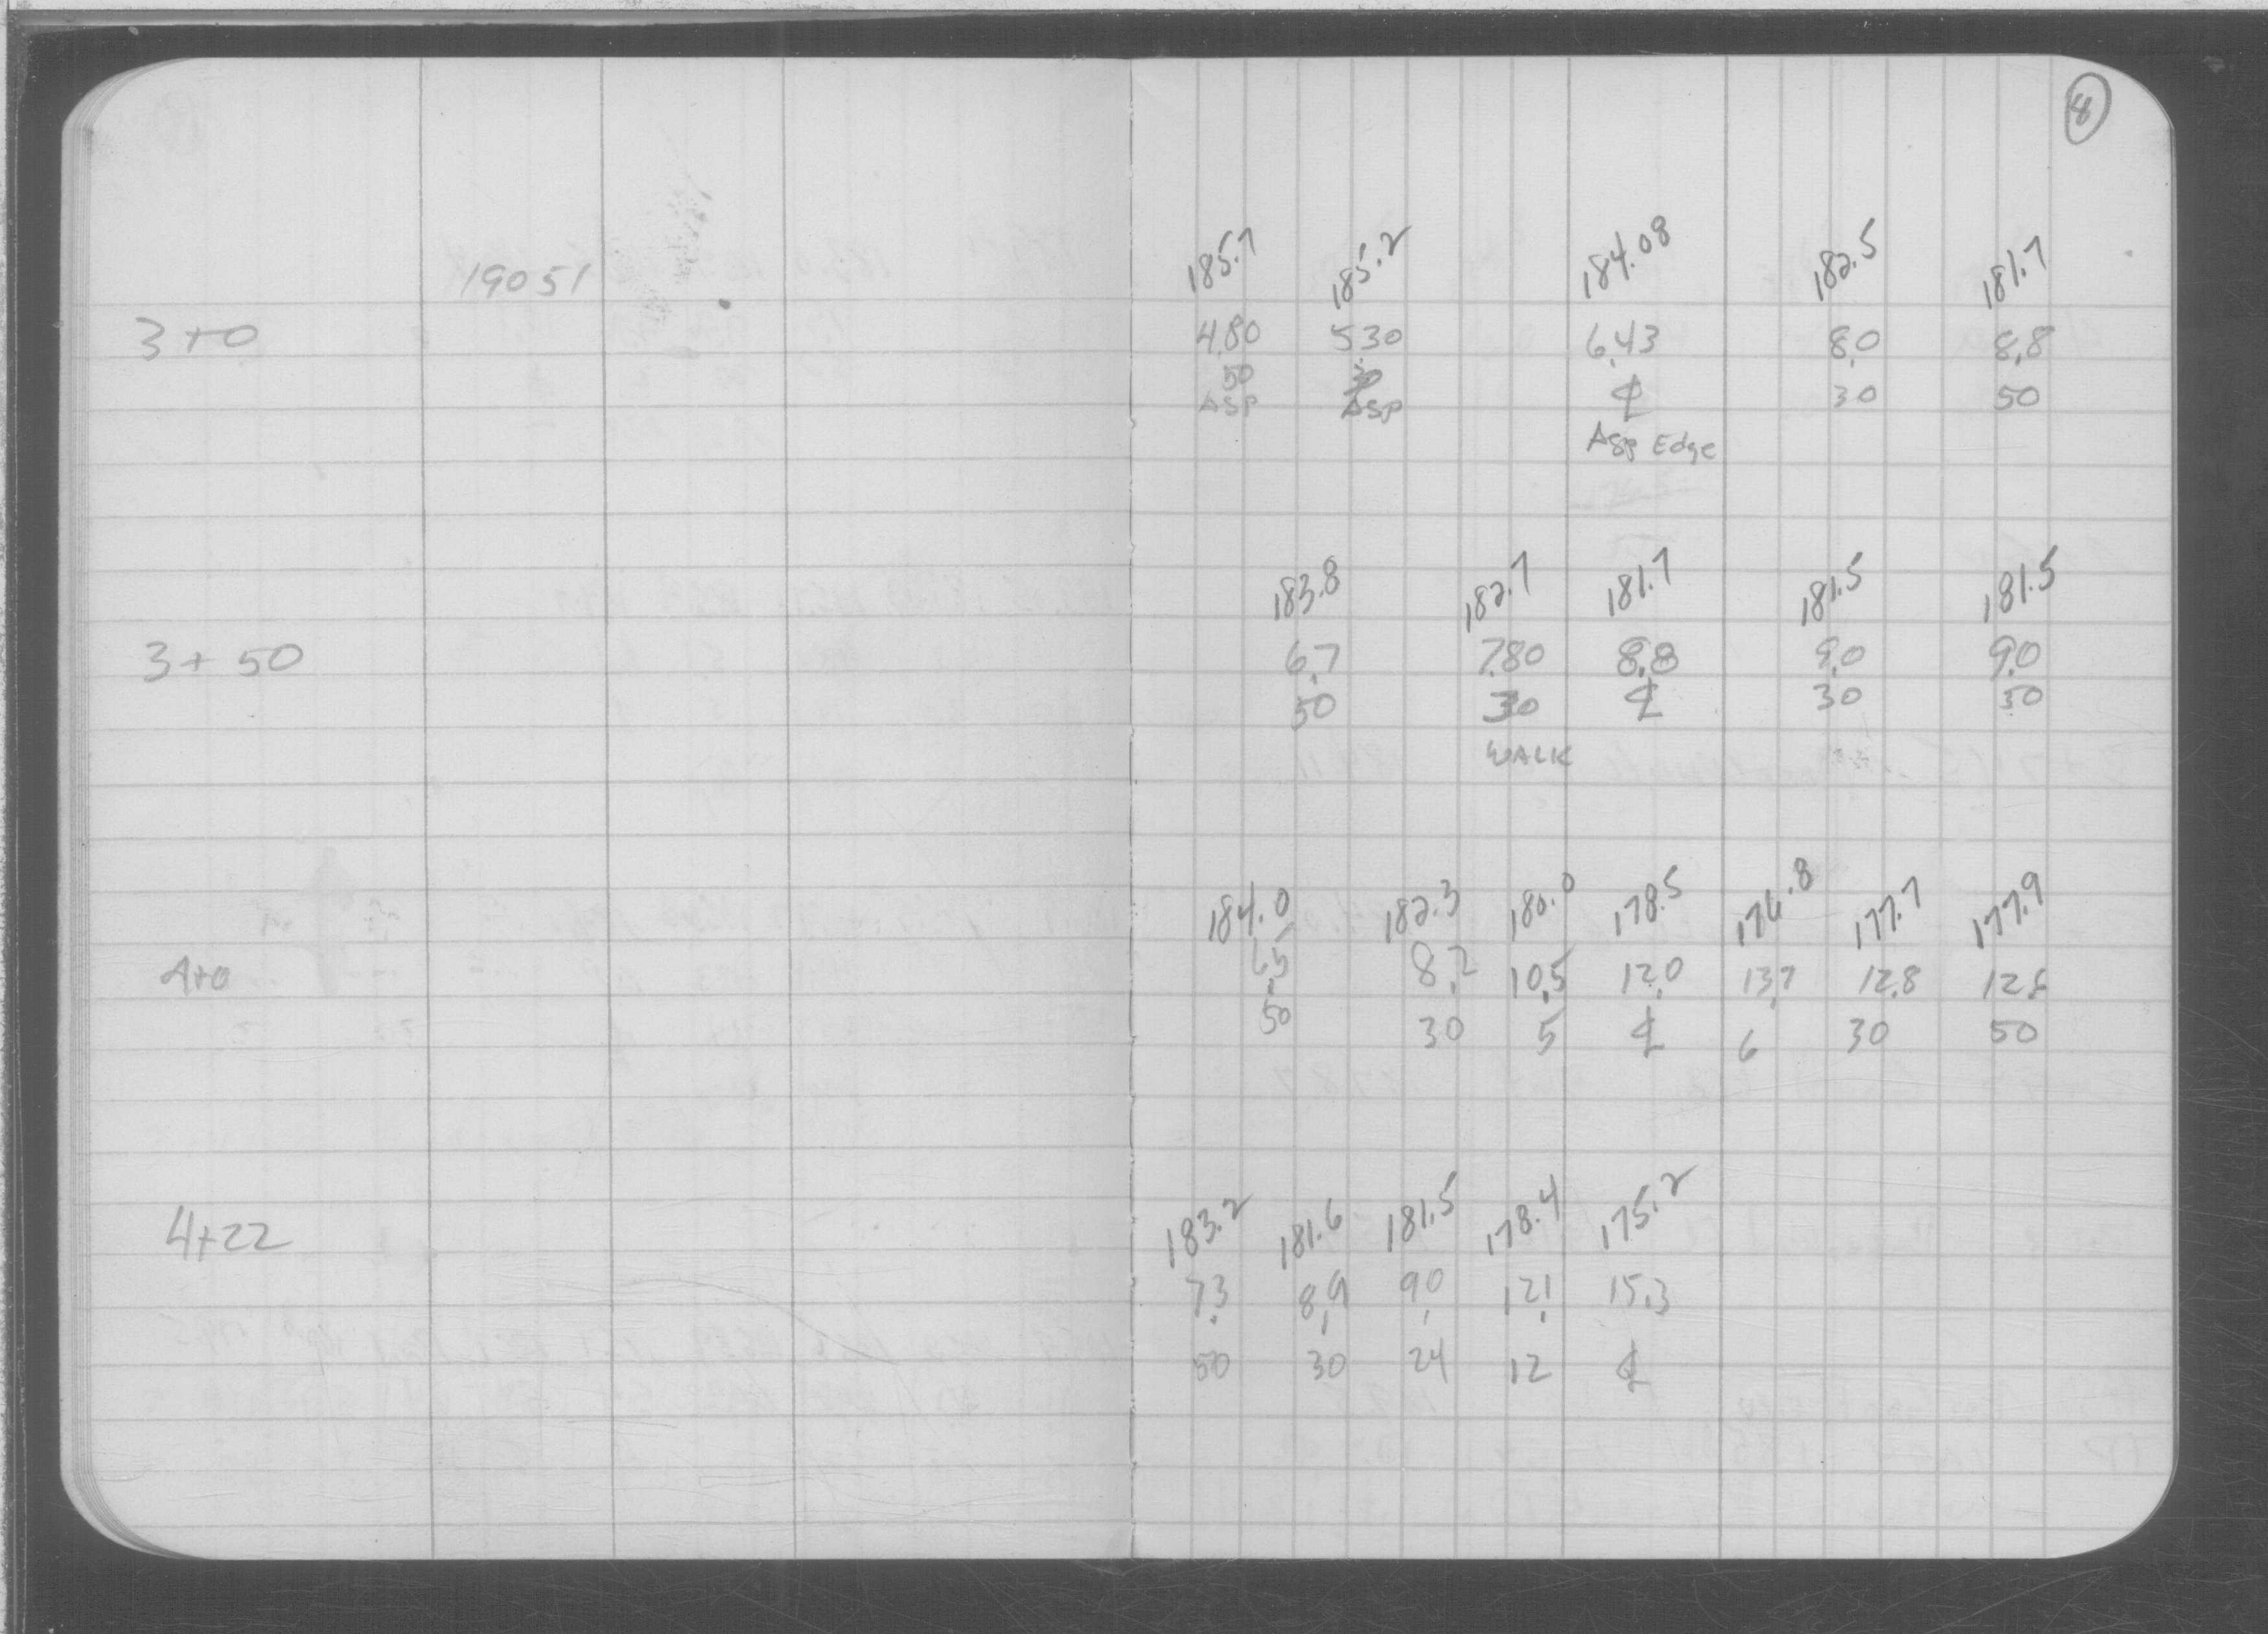 8
185.7 185.2 184.08 182.5 181.7
19051
3+0 4.80 5.30 6.43 8.0 8.8
50 30 ℄ 30 50
Asp Asp
Asp Edge
183.8 182.7 181.7 181.5 181.5
3+50 6.7 7.80 8.8 9.0 9.0
50 30 ℄ 30 50
WALK
184.0 182.3 180.0 178.5 176.8 177.7 177.9
4+0 6.5 8.2 10.5 12.0 13.7 12.8 12.6
50 30 5 ℄ 6 30 50
183.2 181.6 181.5 178.4 175.2
4+22 7.3 8.9 9.0 12.1 15.3
50 30 24 12 ℄